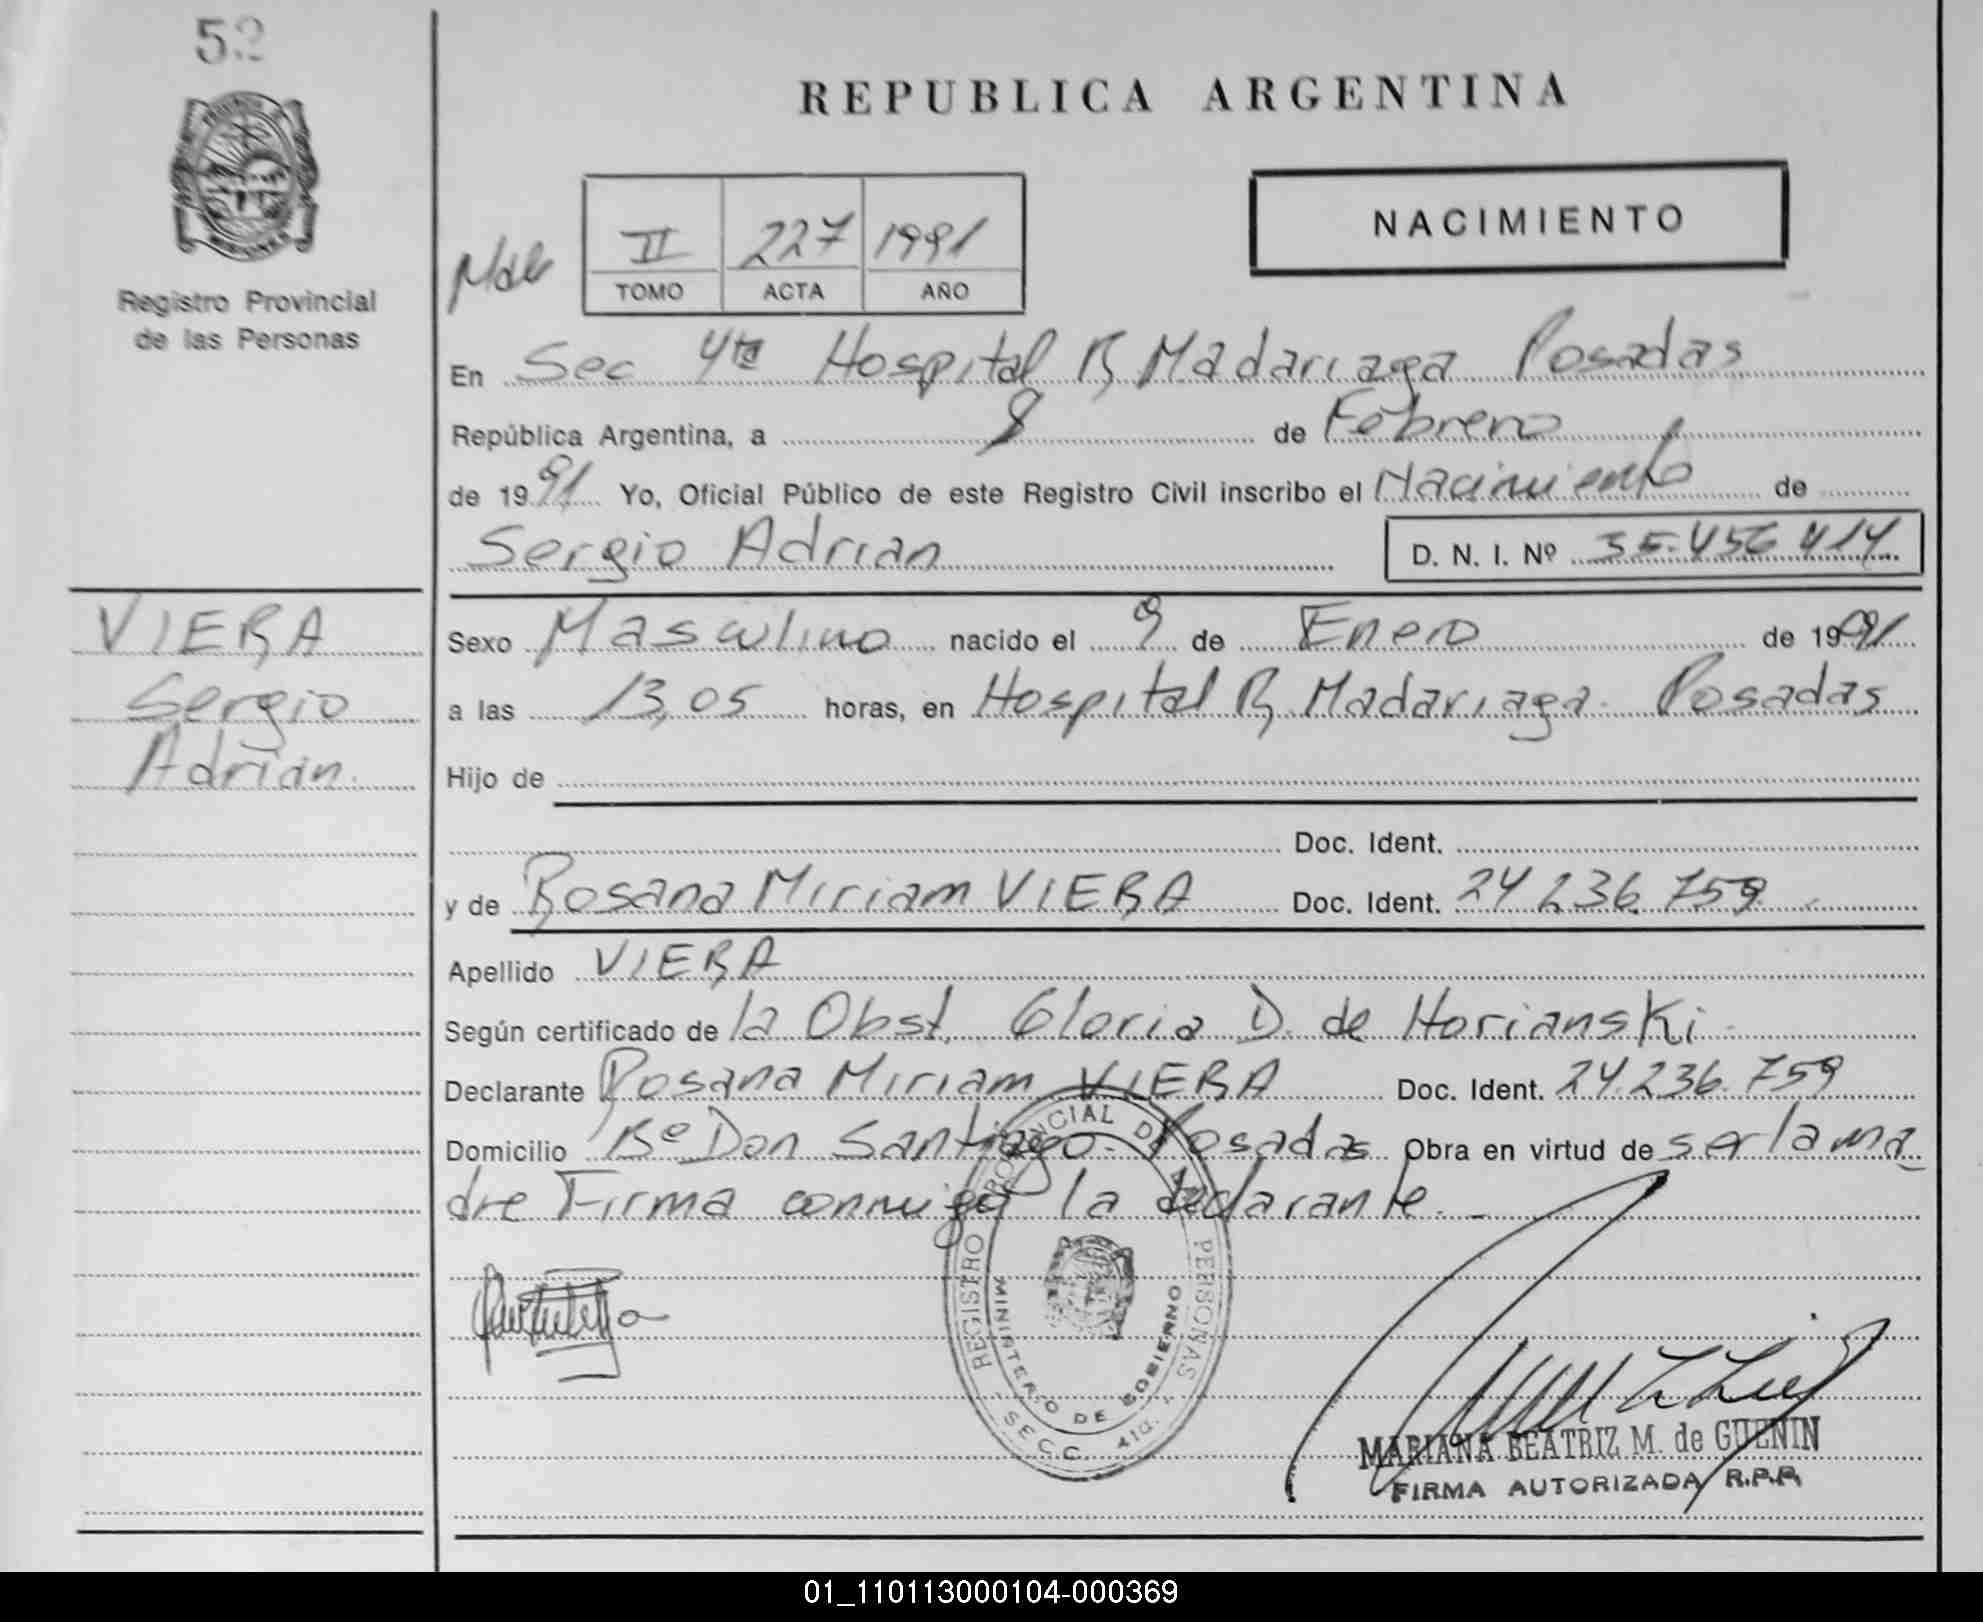 52
REPUBLICA ARGENTINA
NACIMIENTO
II 227 1991
TOMO ACTA AÑO
Registro Provincial
de las Personas
En Sec 4ta Hospital R Madariaga Posadas
República Argentina, a 8 de Febrero
de 1991 Yo, Oficial Público de este Registro Civil inscribo el Nacimiento de
Sergio Adrian D. N. I. Nº 35.456.414
VIERA
Sergio
Adrian.
Sexo Masculino nacido el 9 de Enero de 1991
a las 13,05 horas, en Hospital R Madariaga. Posadas
Hijo de
Doc. Ident.
y de Rosana Miriam VIERA Doc. Ident. 24.236.759
Apellido VIERA
Según certificado de la Obst. Gloria D. de Horianski
Declarante Rosana Miriam VIERA Doc. Ident. 24.236.759
Domicilio Bº Don Santiago. Posadas Obra en virtud de ser la ma
dre Firma conmigo la declarante. -
REGISTRO PROVINCIAL DE LAS PERSONAS
MINISTERIO DE GOBIERNO
SECC. 4ta.
MARIANA BEATRIZ M. de GUENIN
FIRMA AUTORIZADA R.P.P.
01_110113000104-000369